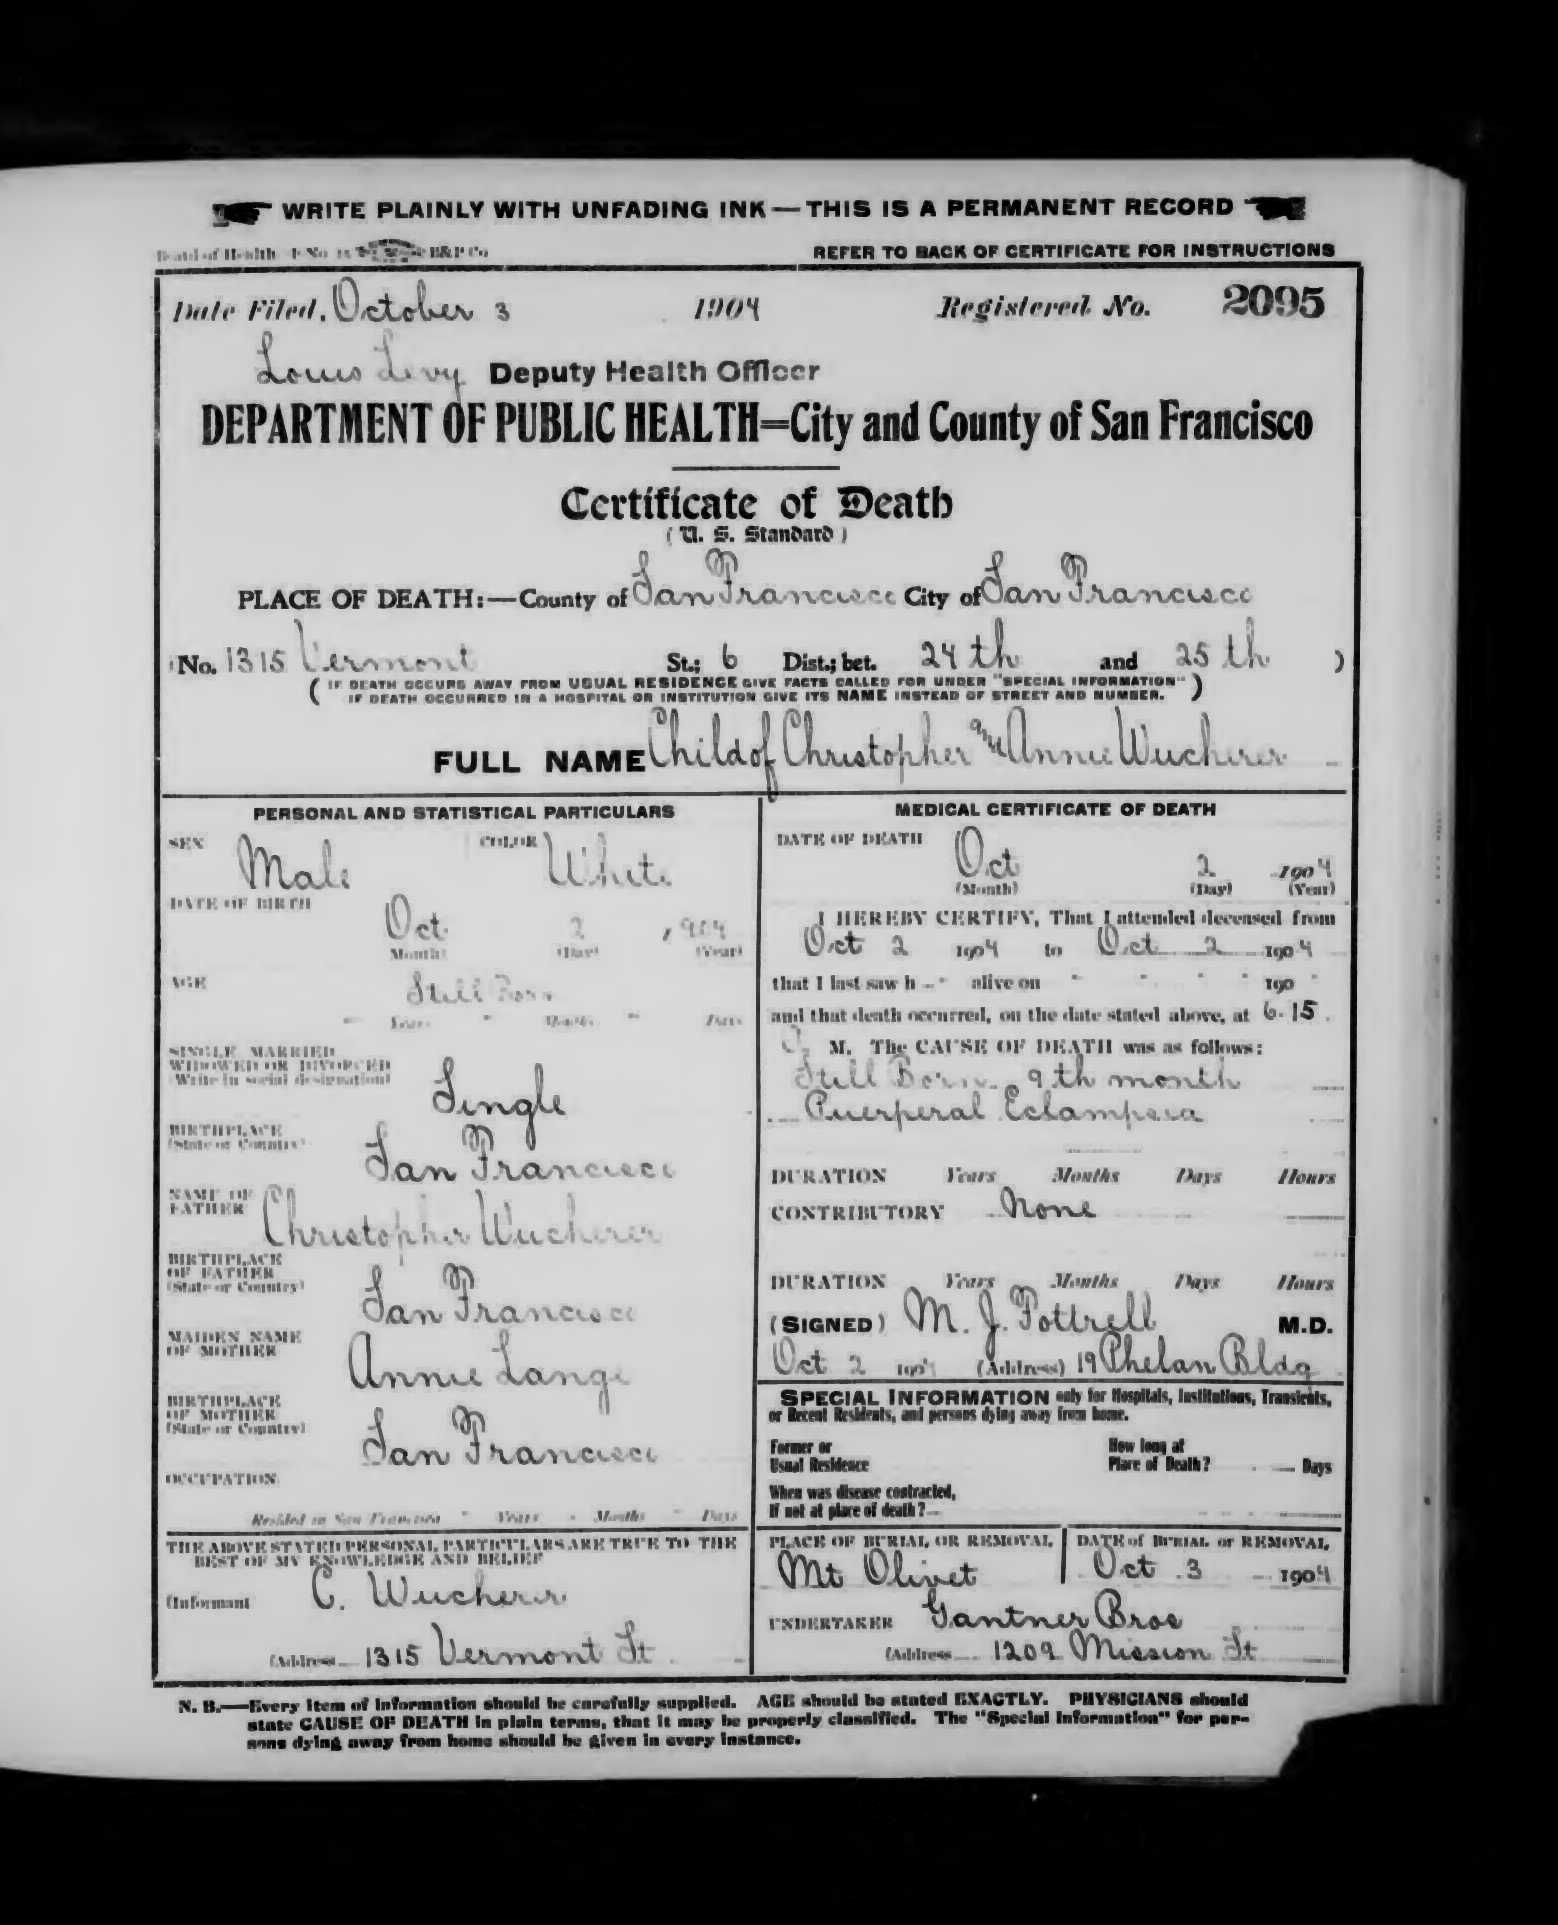 WRITE PLAINLY WITH UNFADING INK — THIS IS A PERMANENT RECORD
Board of Health B&P Co REFER TO BACK OF CERTIFICATE FOR INSTRUCTIONS
Date Filed, October 3 1904 Registered No. 2095
Louis Levy Deputy Health Officer
DEPARTMENT OF PUBLIC HEALTH=City and County of San Francisco
Certificate of Death
( U. S. Standard )
PLACE OF DEATH:—County of San Francisco City of San Francisco
(No. 1315 Vermont St.; 6 Dist.; bet. 24th and 25th )
( IF DEATH OCCURS AWAY FROM USUAL RESIDENCE GIVE FACTS CALLED FOR UNDER "SPECIAL INFORMATION" )
IF DEATH OCCURRED IN A HOSPITAL OR INSTITUTION GIVE ITS NAME INSTEAD OF STREET AND NUMBER.
FULL NAME Child of Christopher and Annie Wucherer
PERSONAL AND STATISTICAL PARTICULARS
SEX Male COLOR White
DATE OF BIRTH
Oct 2 1904
(Month) (Day) (Year)
AGE Still Born
Years Months Days
SINGLE, MARRIED
WIDOWED OR DIVORCED
(Write in social designation) Single
BIRTHPLACE
(State or Country) San Francisco
NAME OF
FATHER Christopher Wucherer
BIRTHPLACE
OF FATHER
(State or Country) San Francisco
MAIDEN NAME
OF MOTHER Annie Lange
BIRTHPLACE
OF MOTHER
(State or Country) San Francisco
OCCUPATION
Resided in San Francisco Years Months Days
THE ABOVE STATED PERSONAL PARTICULARS ARE TRUE TO THE
BEST OF MY KNOWLEDGE AND BELIEF
(Informant C. Wucherer
(Address 1315 Vermont St
MEDICAL CERTIFICATE OF DEATH
DATE OF DEATH Oct 2 1904
(Month) (Day) (Year)
I HEREBY CERTIFY, That I attended deceased from
Oct 2 1904 to Oct 2 1904
that I last saw h - " alive on " " " " 190 "
and that death occurred, on the date stated above, at 6.15.
M. The CAUSE OF DEATH was as follows:
Still Born 9th month
Puerperal Eclampsia
DURATION Years Months Days Hours
CONTRIBUTORY None
DURATION Years Months Days Hours
(SIGNED) M. J. Pottrell M.D.
Oct 2 1904 (Address) 19 Phelan Bldg
SPECIAL INFORMATION only for Hospitals, Institutions, Transients,
or Recent Residents, and persons dying away from home.
Former or
Usual Residence
How long at
Place of Death? Days
When was disease contracted,
If not at place of death?
PLACE OF BURIAL OR REMOVAL
Mt Olivet
DATE of BURIAL or REMOVAL
Oct 3 1904
UNDERTAKER Gantner Bros
(Address 1209 Mission St
N. B.—Every item of information should be carefully supplied. AGE should be stated EXACTLY. PHYSICIANS should
state CAUSE OF DEATH in plain terms, that it may be properly classified. The "Special Information" for per-
sons dying away from home should be given in every instance.